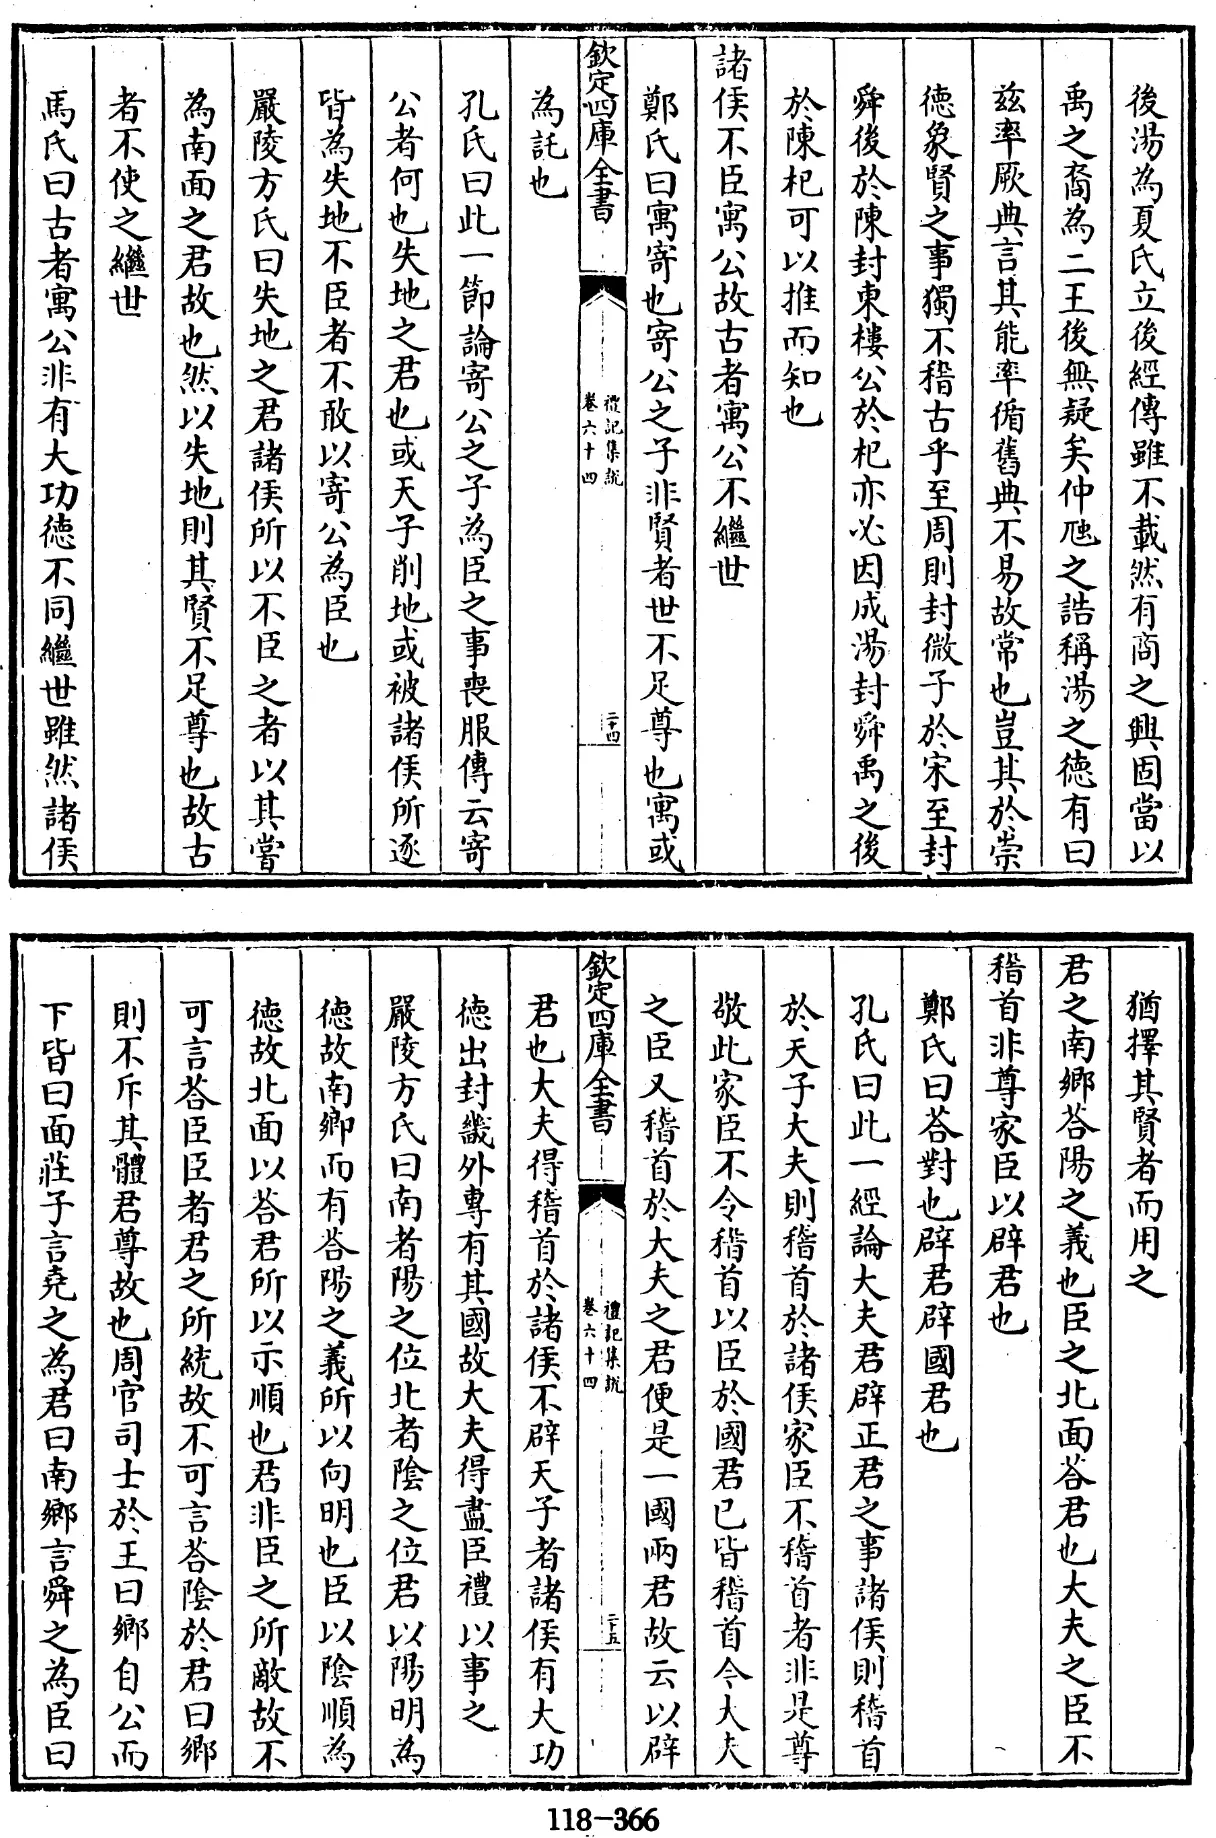 後湯為夏氏立後經傳雖不載然有商之興固當以
禹之裔為二王後無疑矣仲虺之誥稱湯之德有曰
兹率厥典言其能率循舊典不易故常也豈其於崇
德象賢之事獨不稽古乎至周則封微子於宋至封
舜後於陳封東樓公於杞亦必因成湯封舜禹之後
於陳杞可以推而知也
諸侯不臣寓公故古者寓公不繼世
鄭氏曰寓寄也寄公之子非賢者世不足尊也寓或
欽定四庫全書
禮記集說
卷六十四
二十四
為託也
孔氏曰此一節論寄公之子為臣之事喪服傳云寄
公者何也失地之君也或天子削地或被諸侯所逐
皆為失地不臣者不敢以寄公為臣也
嚴陵方氏曰失地之君諸侯所以不臣之者以其嘗
為南面之君故也然以失地則其賢不足尊也故古
者不使之繼世
馬氏曰古者寓公非有大功德不同繼世雖然諸侯
猶擇其賢者而用之
君之南鄉荅陽之義也臣之北面荅君也大夫之臣不
稽首非尊家臣以辟君也
鄭氏曰荅對也辟君辟國君也
孔氏曰此一經論大夫君辟正君之事諸侯則稽首
於天子大夫則稽首於諸侯家臣不稽首者非是尊
敬此家臣不令稽首以臣於國君已皆稽首今大夫
之臣又稽首於大夫之君便是一國兩君故云以辟
欽定四庫全書
禮記集說
卷六十四
二十五
君也大夫得稽首於諸侯不辟天子者諸侯有大功
德出封畿外專有其國故大夫得盡臣禮以事之
嚴陵方氏曰南者陽之位北者陰之位君以陽明為
德故南鄉而有荅陽之義所以向明也臣以陰順為
德故北面以荅君所以示順也君非臣之所敵故不
可言荅臣臣者君之所統故不可言荅陰於君曰鄉
則不斥其體君尊故也周官司士於王曰鄉自公而
下皆曰面莊子言堯之為君曰南鄉言舜之為臣曰
118-366